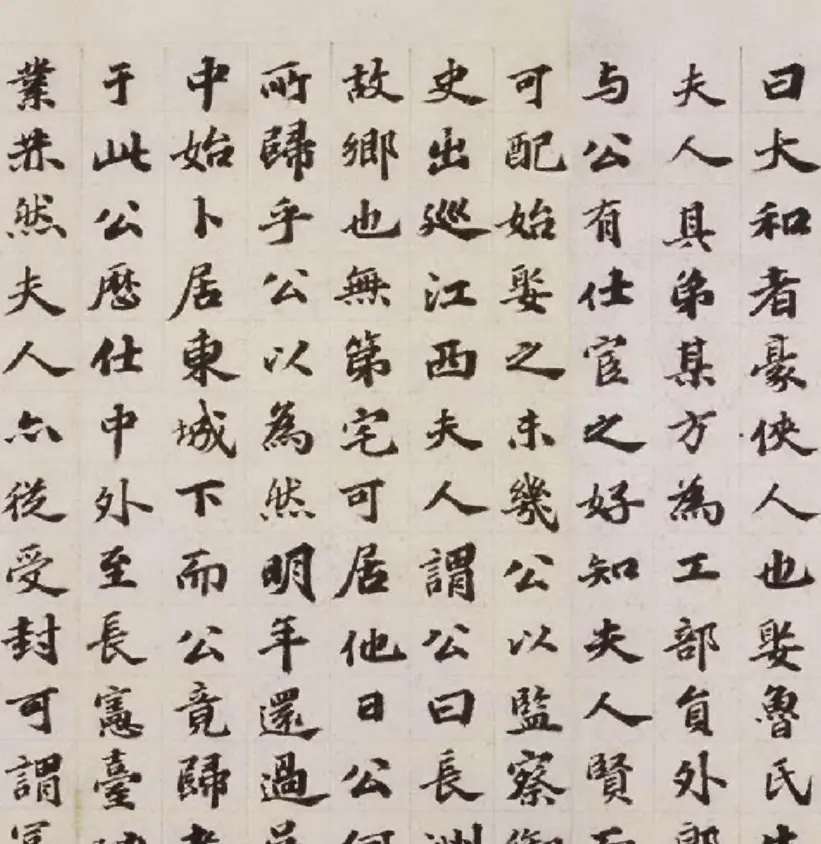 曰大和者豪俠人也娶魯氏
夫人其弟某方為工部員外郎
与公有仕宦之好知夫人賢而
可配始娶之未幾公以監察御
史出巡江西夫人謂公曰長洲
故鄉也無第宅可居他日公何
所歸乎公以為然明年還過吳
中始卜居東城下而公竟歸老
于此公歷仕中外至長憲臺
業赫然夫人亦從受封可謂富